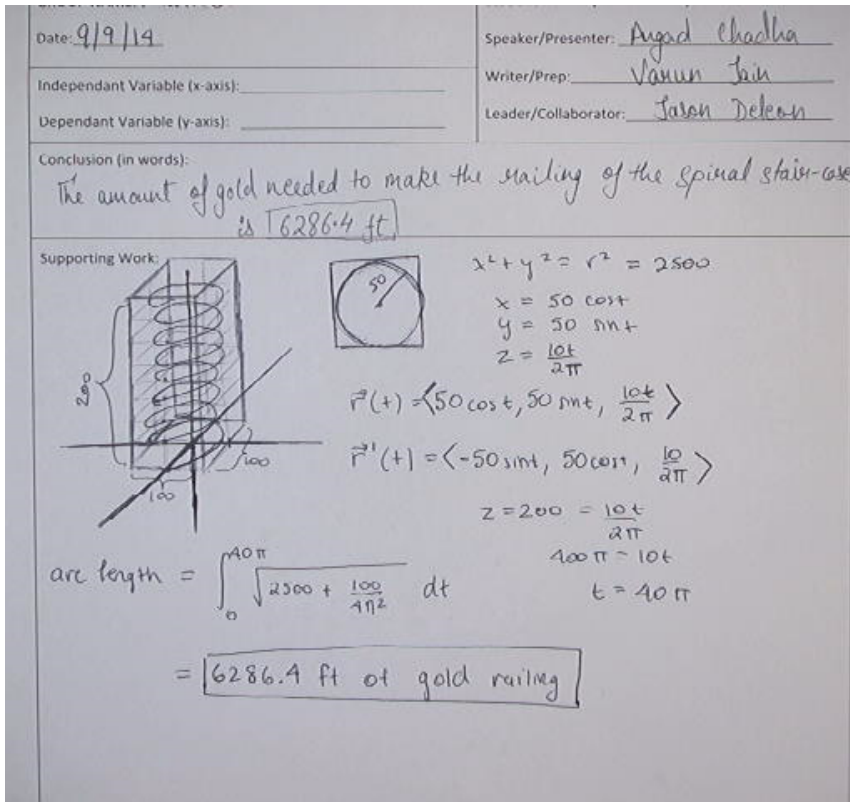 Date: 9/9/14
Speaker/Presenter: Angad Chadha
Writer/Prep: Varun Jain
Independant Variable (x-axis):
Leader/Collaborator: Jason Deleon
Dependant Variable (y-axis):
Conclusion (in words):
The amount of gold needed to make the railing of the spiral stair-case
is 6286.4 ft
Supporting Work:
50
x² + y² = r² = 2500
x = 50 cost
y = 50 sint
z = 10t/2π
200
r⃗(t) = <50 cos t, 50 sint, 10t/2π>
r⃗'(t) = <-50 sint, 50 cost, 10/2π>
100
100
z = 200 = 10t/2π
400π = 10t
t = 40π
arc length = ∫₀^40π √(2500 + 100/4π²) dt
= 6286.4 ft of gold railing